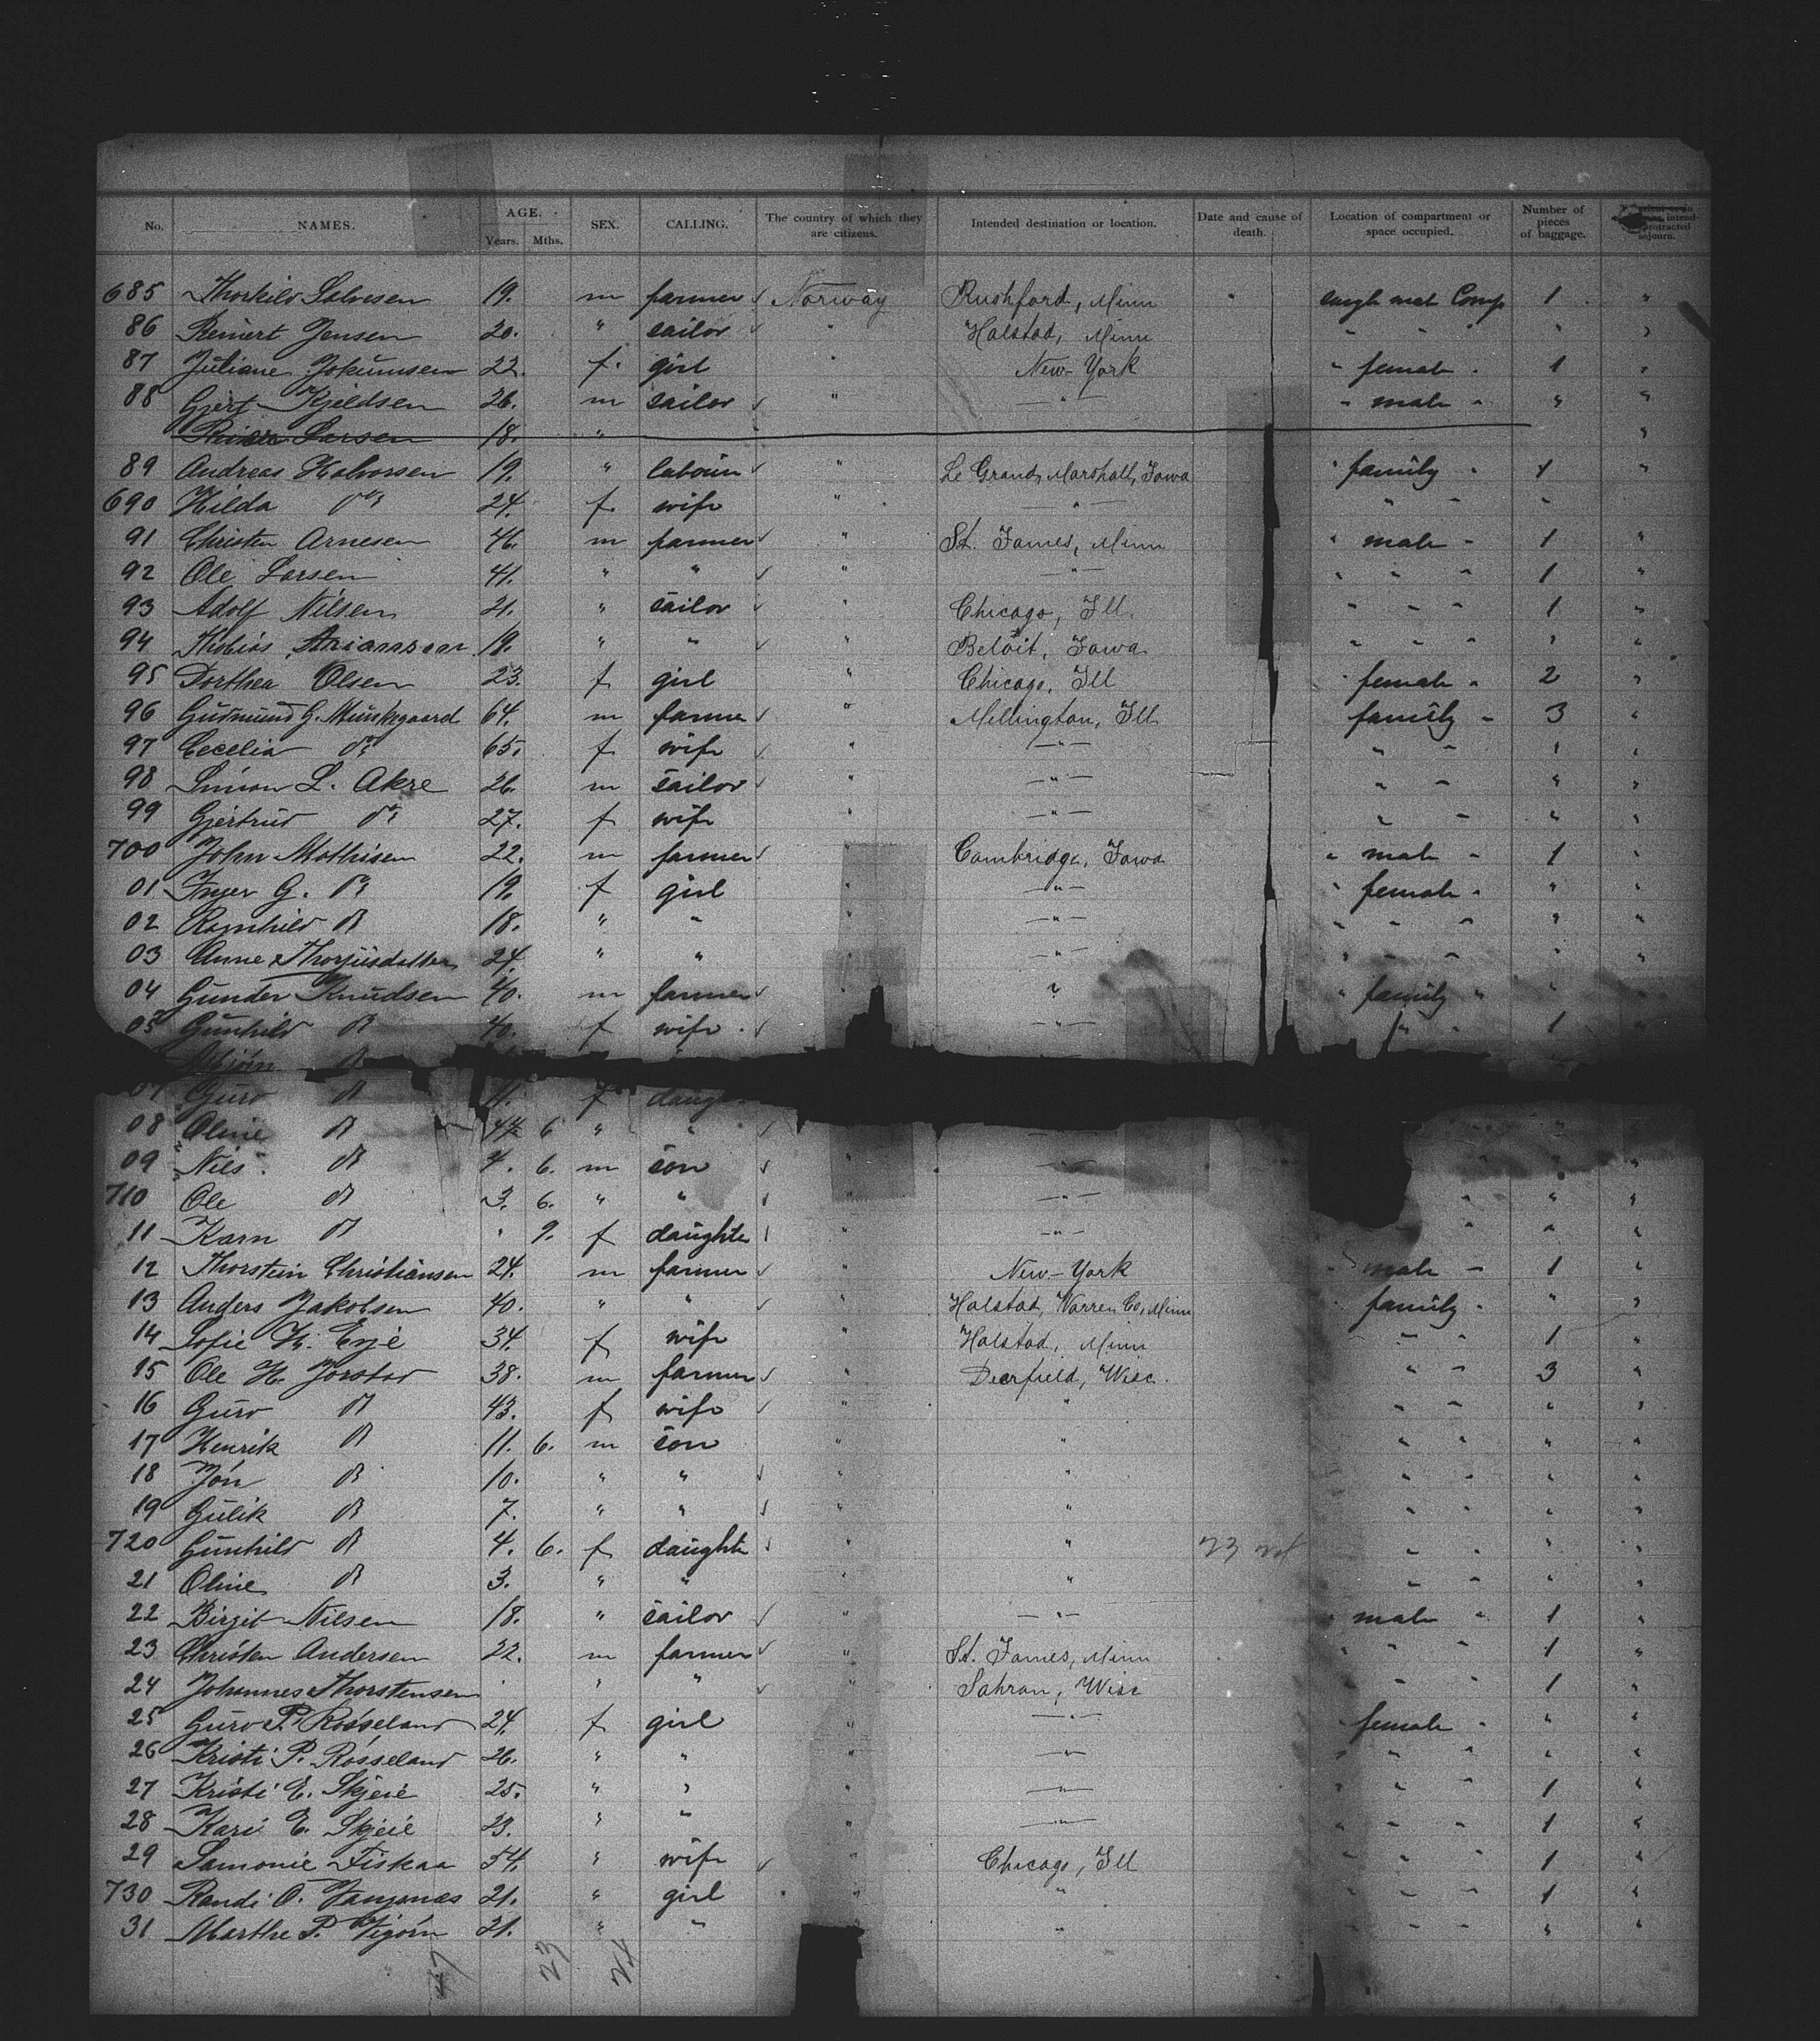 No. NAMES. AGE. Years. Mths. SEX. CALLING. The country of which they are citizens. Intended destination or location. Date and cause of death. Location of compartment or space occupied. Number of pieces of baggage. intend protracted sojourn.
685 Thorkild Salvesen 19. m farmer Norway Rushford, Minn Comp 1 "
86 Reinert Jensen 20. " sailor " Halstad, Minn " " " " "
87 Juliane Jokumsen 22. f. girl " New-York " female " 1 "
88 Gjert Kjeldsen 26. m sailor " — " — " male " " "
Larsen 18. "
89 Andreas Halvorsen 19. " labour " Le Grand, Marshall, Iowa " family " 1 "
690 Hilda do 24. f. wife " — " — " " "
91 Christen Arnesen 46. m farmer " St. James, Minn " male " 1 "
92 Ole Larsen 41. " " " — " — " " " 1 "
93 Adolf Nilsen 21. " sailor " Chicago, Ill. " " " 1 "
94 Thobias 19. " " " Beloit, Iowa " " " " "
95 Dorthea Olsen 23. f girl " Chicago, Ill " female " 2 "
96 Gudmund G. Munkegaard 64. m farmer " Millington, Ill. family " 3 "
97 Cecelia do 65. f wife " — " — " " " "
98 Simon L. Akre 26. m sailor " — " — " " " "
99 Gjertrud do 27. f wife " — " — " " " "
700 John Mathisen 22. m farmer " Cambridge, Iowa " male " 1 "
01 Inger G. do 19. f girl " — " — " female " " "
02 Ragnhild do 18. " " " — " — " " " " "
03 Anne Thorjusdatter 24. " " " — " — " " " " "
04 Gunder Knudsen 40. m farmer " " " family " " "
05 Gunhild do 40. f wife " — " — " " 1 "
do
07 Guro do 11. f
08 Oline do 6 " "
09 Nils do 4. 6. m son " — " — " "
710 Ole do 3. 6. " " " — " — " " "
11 Karn do " 9. f daughte " — " — " " "
12 Thorstein Christiansen 24. m farmer " New-York " male " 1 "
13 Anders Jakobsen 40. " " " Halstad, Warren Co, Minn family " " "
14 Sofie H. Evje 34. f wife " Halstad, Minn " " 1 "
15 Ole H. Jorstad 38. m farmer " Deerfield, Wisc. " " 3 "
16 Guro do 43. f wife " " " " " "
17 Henrik do 11. 6. m son " " " " " "
18 Jon do 10. " " " " " " " "
19 Gulik do 7. " " " " " " " "
720 Gunhild do 4. 6. f daughte " " 23 " " " "
21 Oline do 3. " " " " " " " "
22 Birgit Nilsen 18. " sailor " — " — " male " 1 "
23 Christen Andersen 22. m farmer " St. James, Minn " " " 1 "
24 Johannes Thorstensen " " " " Wisc " " 1 "
25 Guro P. Rosseland 24. f girl " — " — " female " " "
26 Kristi P. Rosseland 26. " " " — " — " " " " "
27 Kristi E. Skjeie 25. " " " — " — " " " 1 "
28 Kari E. Skjeie 23. " " " — " — " " " 1 "
29 Samonie Fiskaa 54. " wife " Chicago, Ill " " " 1 "
730 Randi O. 21. " girl " " " " " 1 "
31 Marthe P. 21. " " " " " " " " "
23